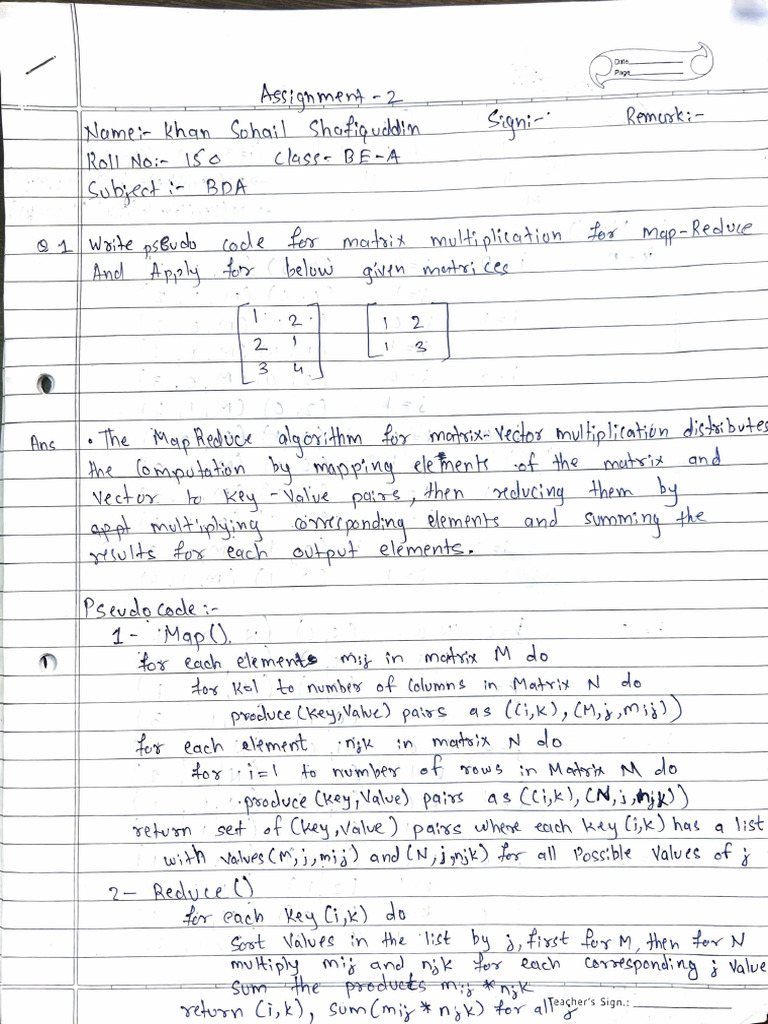 Date
Page
Assignment - 2
Name:- Khan Sohail Shafiquddin Sign:- Remark:-
Roll No:- 150 Class- BE-A
Subject :- BDA
Q 1 Write pseudo code for matrix multiplication for Map-Reduce
And Apply for below given matrices
1 2 1 2
2 1 1 3
3 4
Ans • The MapReduce algorithm for matrix-vector multiplication distributes
the computation by mapping elements of the matrix and
vector to key-value pairs, then reducing them by
appt multiplying corresponding elements and summing the
results for each output elements.
Pseudocode :-
1- Map().
for each elements mij in matrix M do
for k=1 to number of columns in Matrix N do
produce (key,value) pairs as ((i,k), (M,j,mij))
for each element njk in matrix N do
for i=1 to number of rows in Matrix M do
produce (key,value) pairs as ((i,k), (N,j,njk))
return set of (key,value) pairs where each key (i,k) has a list
with values (M,j,mij) and (N,j,njk) for all Possible values of j
2- Reduce ()
for each key (i,k) do
sort values in the list by j, first for M, then for N
multiply mij and njk for each corresponding j value
sum the products mij * njk
return (i,k), sum(mij * njk) for all j
Teacher's Sign.: